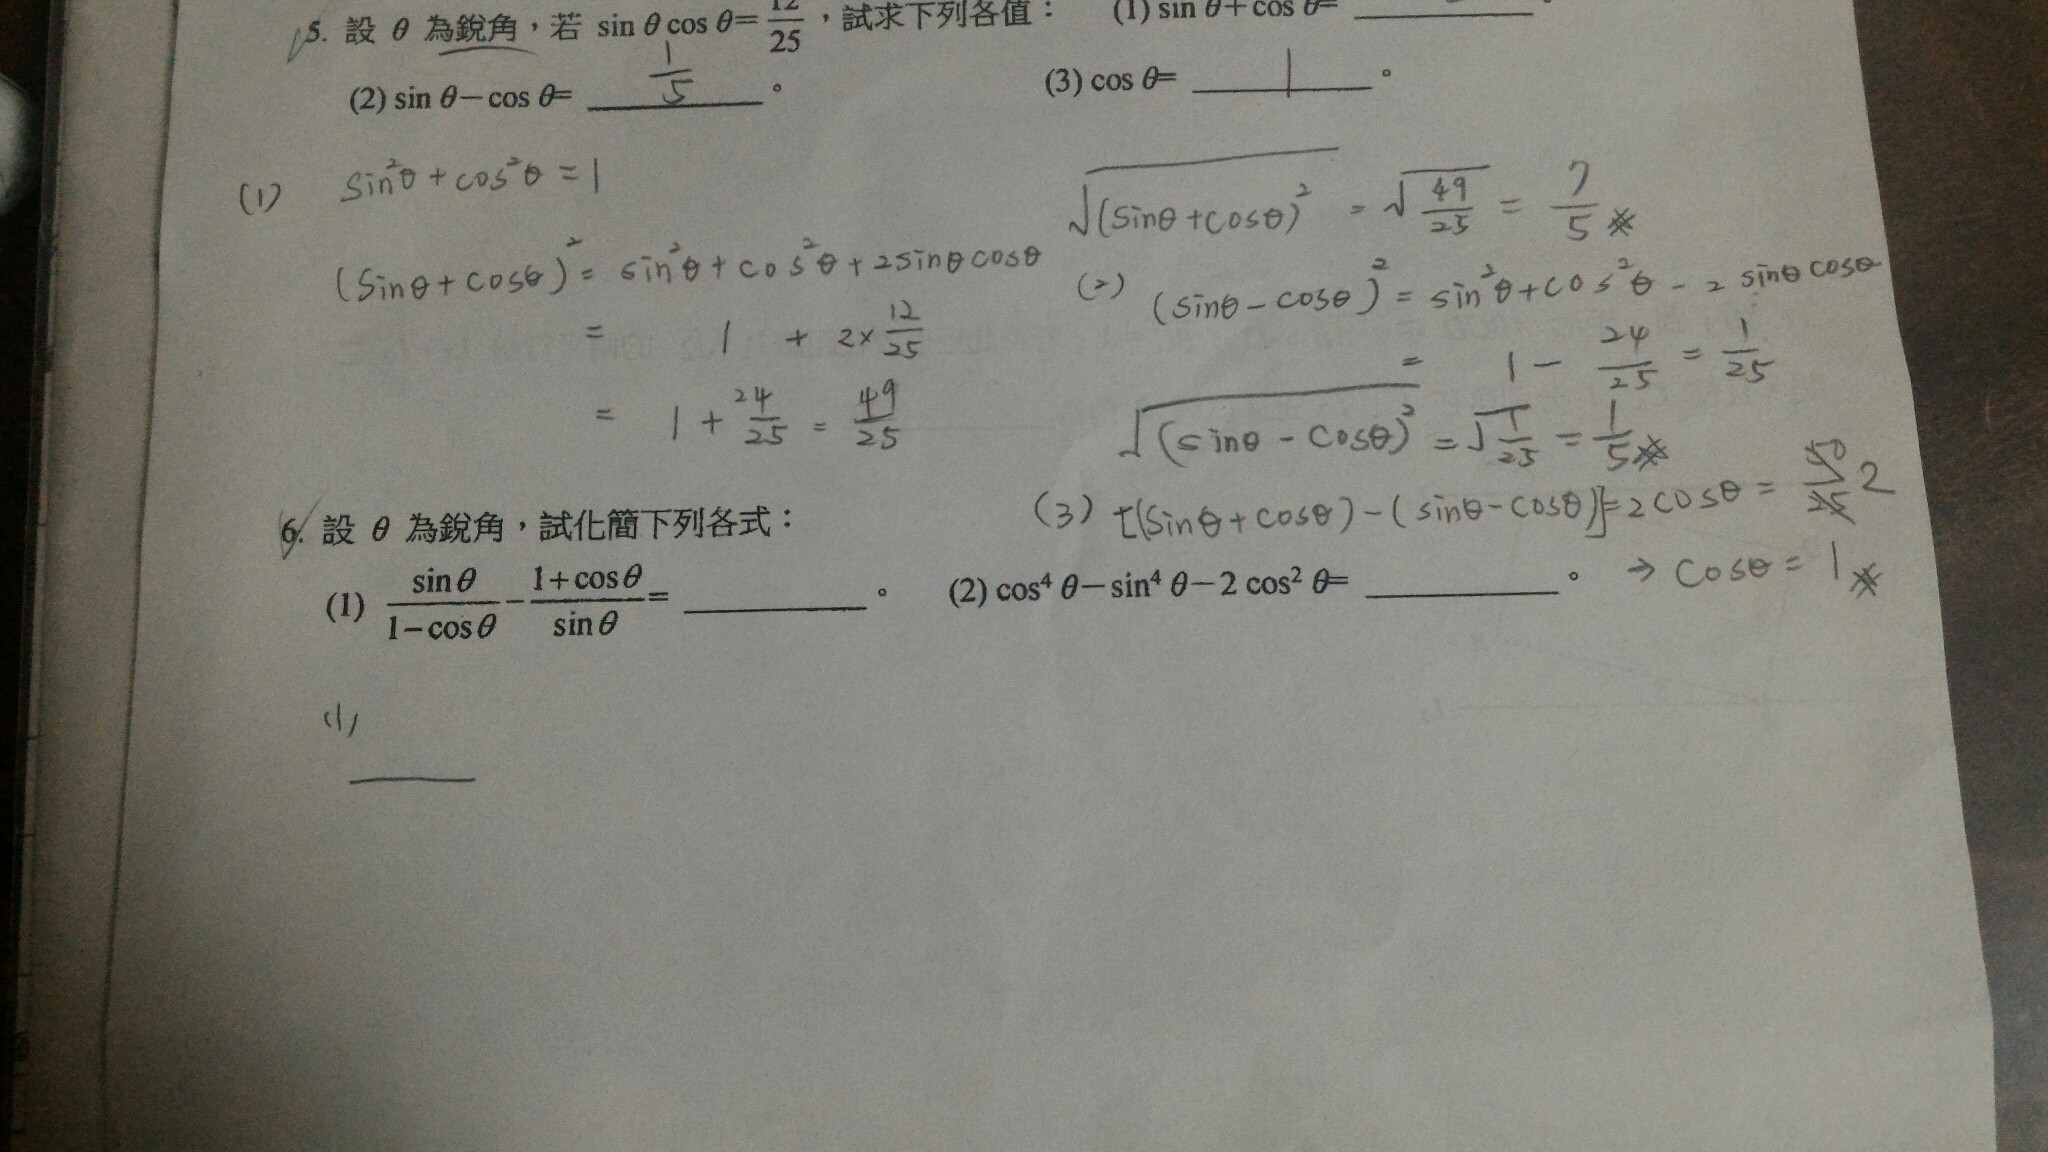 5. 設 θ 為銳角，若 sin θ cos θ= 12/25 ，試求下列各值： (1) sin θ+cos θ= ________。
(2) sin θ−cos θ= 1/5 。 (3) cos θ= 1 。
(1) sin²θ + cos²θ = 1
(sinθ + cosθ)² = sin²θ + cos²θ + 2sinθcosθ
= 1 + 2× 12/25
= 1 + 24/25 = 49/25
√(sinθ + cosθ)² = √49/25 = 7/5 ※
(2) (sinθ - cosθ)² = sin²θ + cos²θ - 2 sinθ cosθ
= 1 - 24/25 = 1/25
√(sinθ - cosθ)² = √1/25 = 1/5 ※
(3) [(sinθ + cosθ) - (sinθ - cosθ)] = 2cosθ = 50/25 2
→ cosθ = 1 ※
6. 設 θ 為銳角，試化簡下列各式：
(1) sin θ/1−cos θ − 1+cos θ/sin θ = ________。 (2) cos⁴ θ−sin⁴ θ−2 cos² θ= ________。
(1)